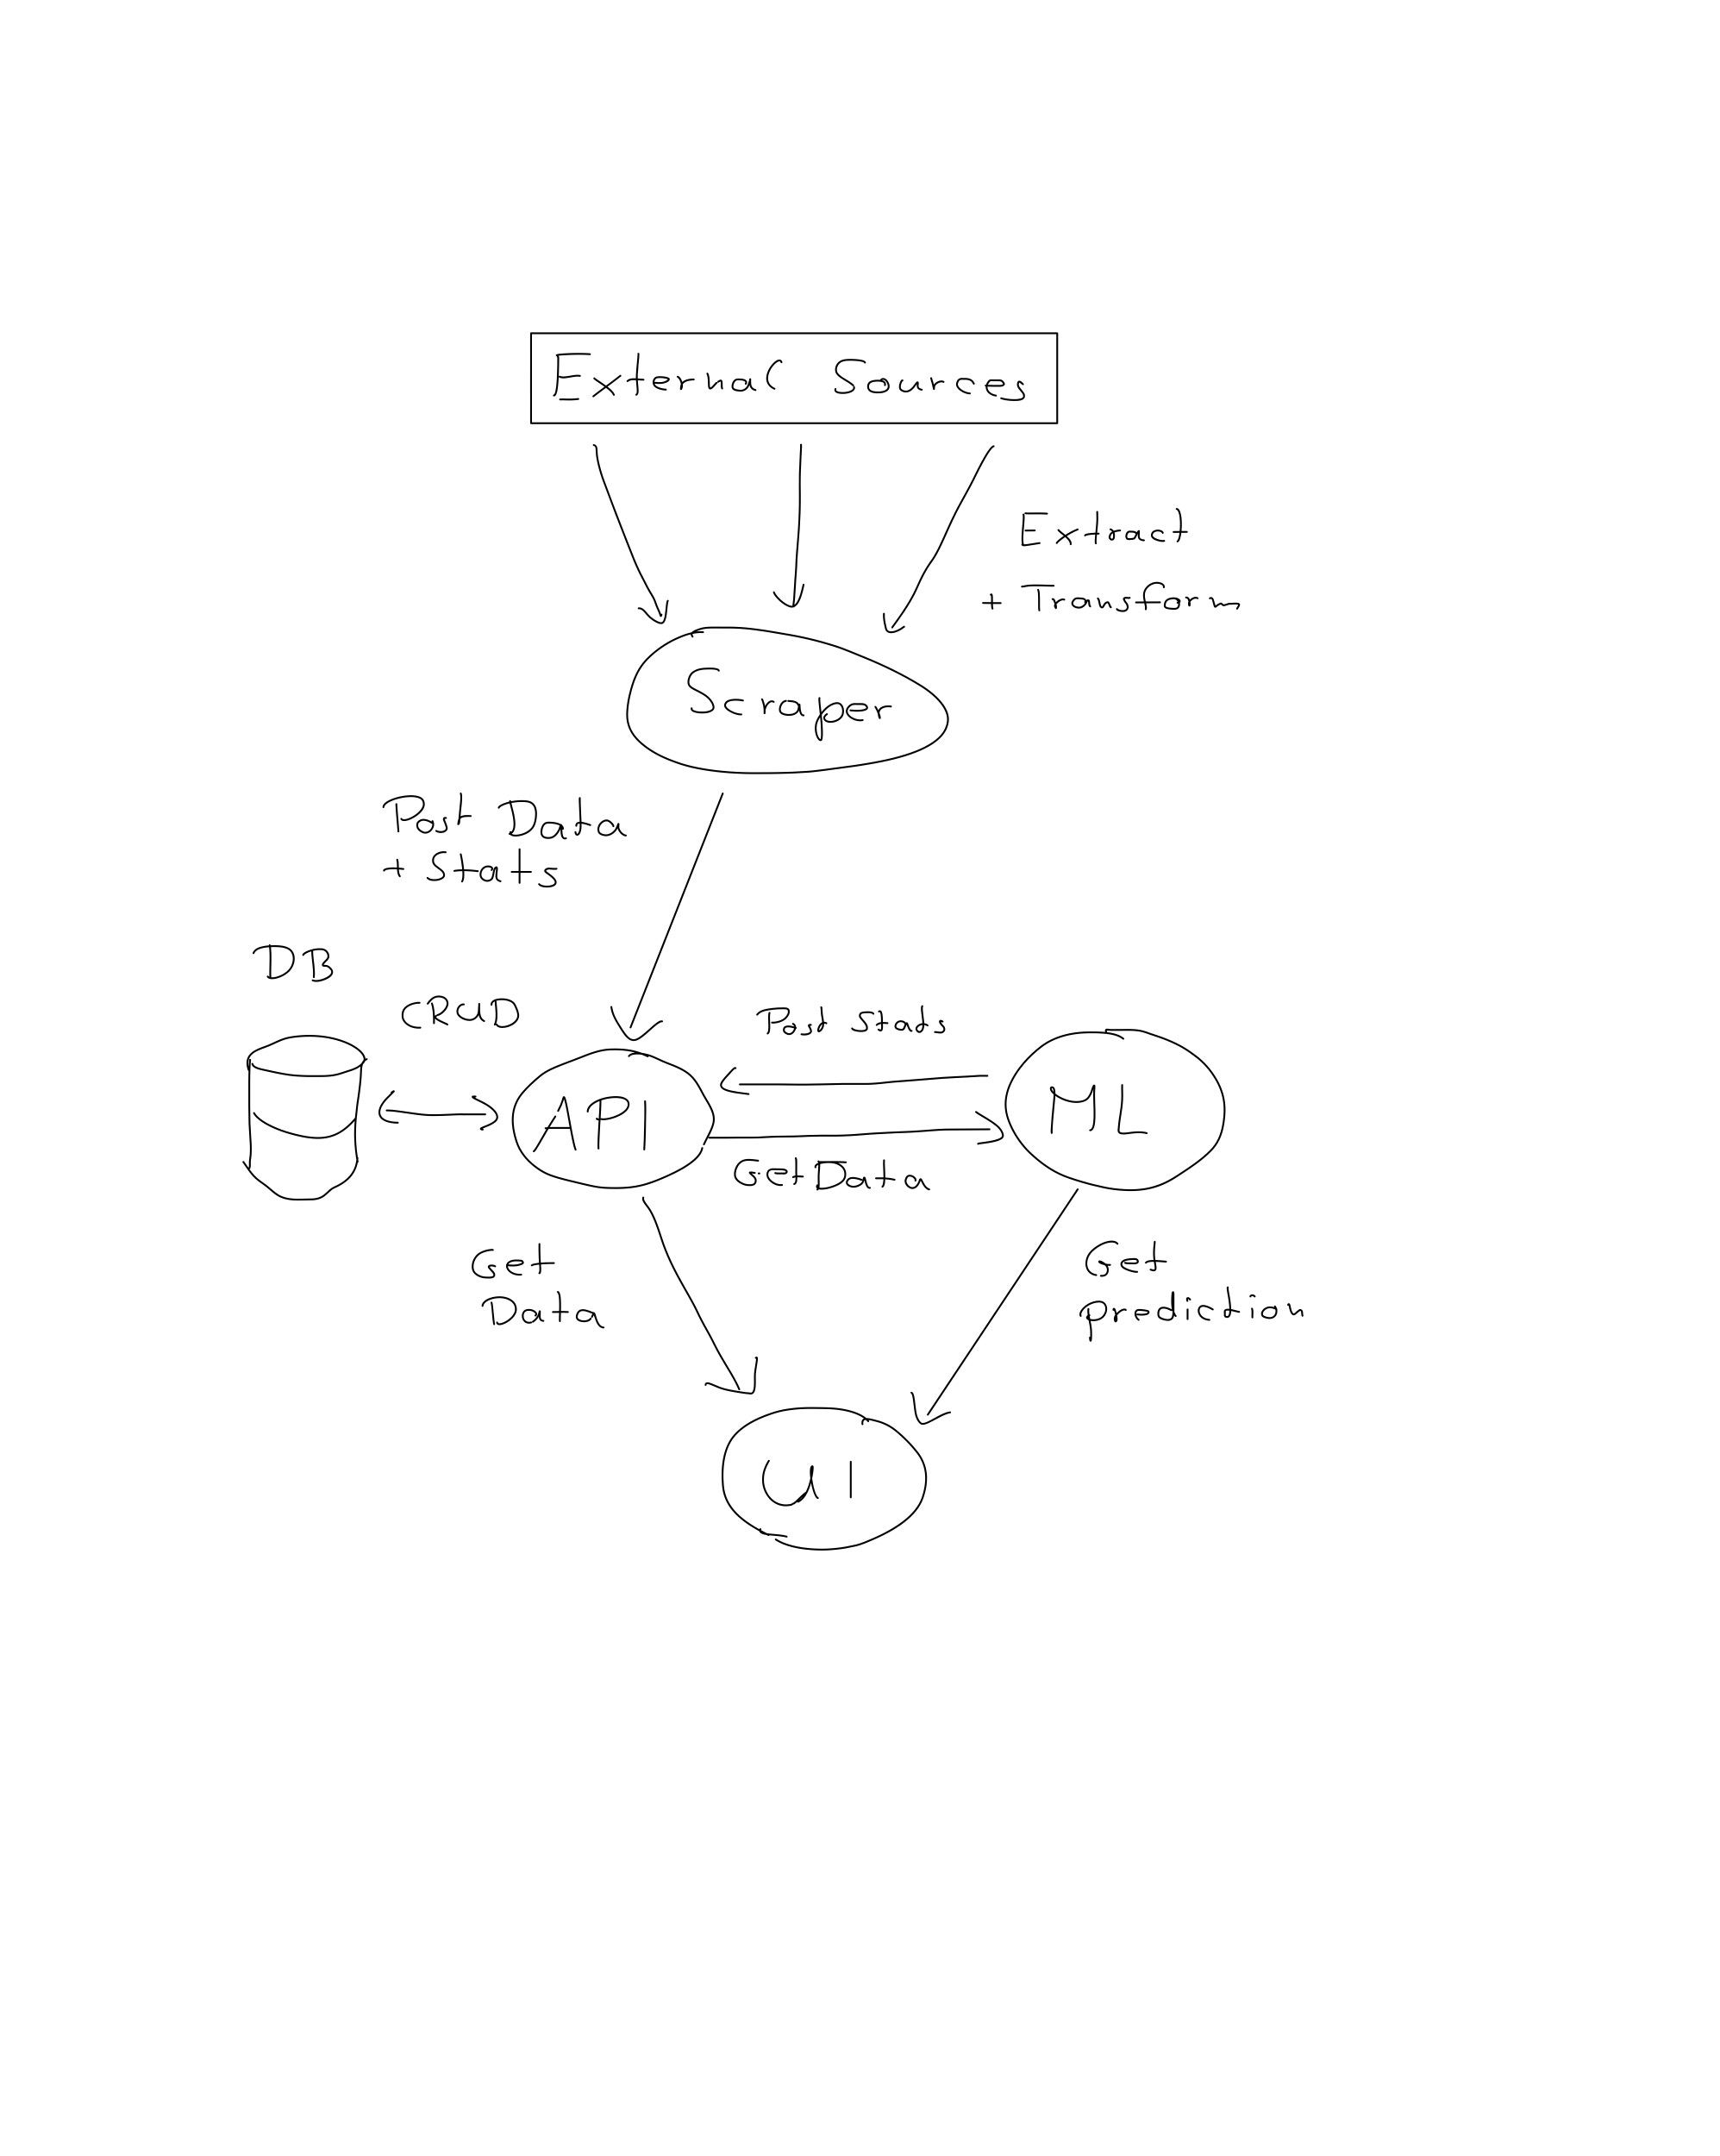 External Sources
Extract
+ Transform
Scraper
Post Data
+ Stats
DB
CRUD
Post Stats
API
ML
Get Data
Get
Data
Get
prediction
UI